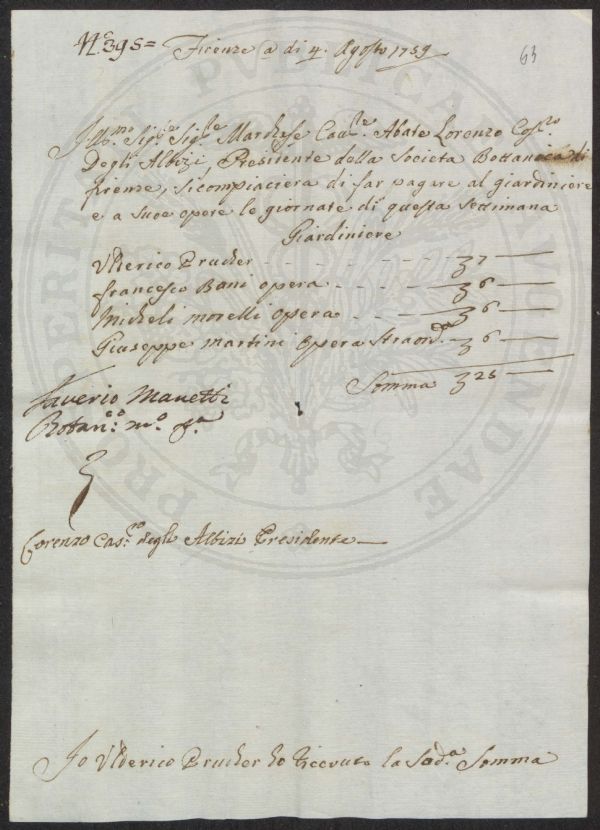 N.º 395= Firenze a di 4. Agosto 1759
63
Ill.mo Sig.re Sig.re Marchese Cav.re Abate Lorenzo Cas.ro
Degli Albizi Presidente della Societa Bottanaca di
firenze, Si compiacierà di far pagare al giardiniere
e a Sue opere le giornate di questa Settimana
Giardiniere
Ulderico Prucher - - - - - - 7 —
francesco Bani opera - - - - 6 —
Micheli Morelli opera - - - 6 —
Giuseppe martini opera Straord.a - 6 —
Somma 25 —
Saverio Manetti
Botan.co m.o p.a
Lorenzo Cas.ro degli Albizi Presidente —
Io Ulderico Prucher ho ricevuto la Sud.a Somma